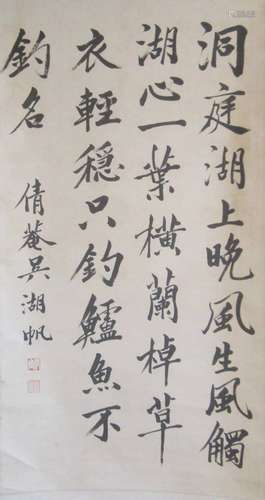 洞庭湖上晚風生風觸
湖心一葉橫蘭棹草
衣輕穩只釣鱸魚不
釣名
倩菴吳湖帆